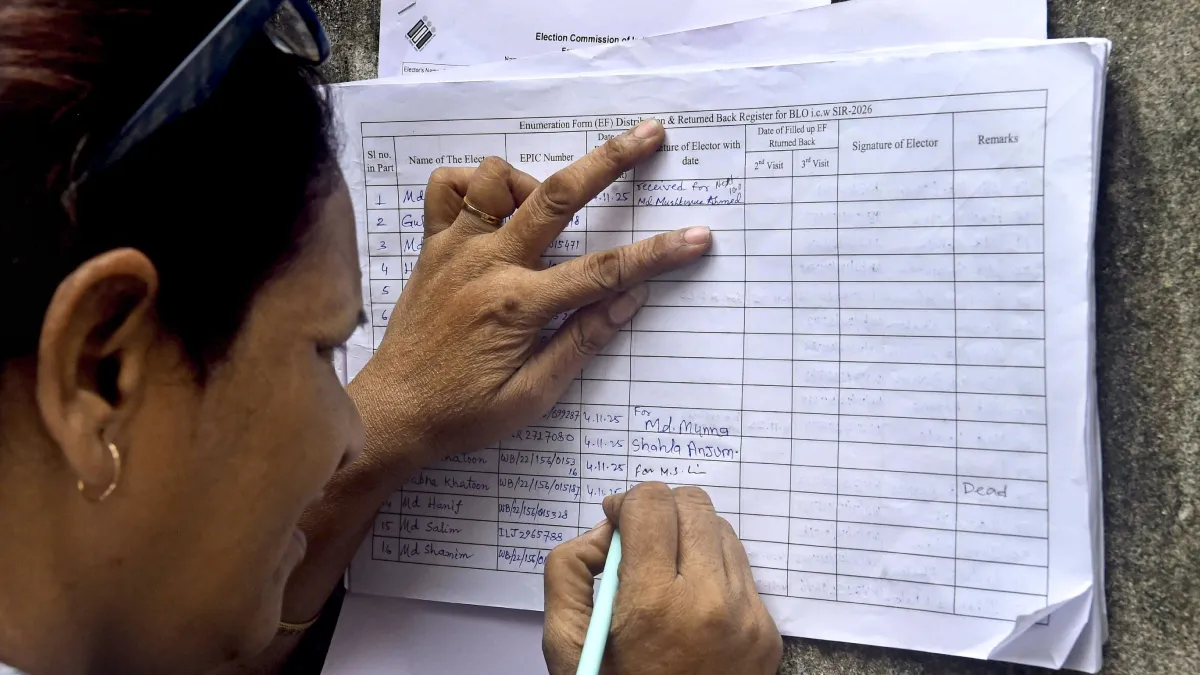 Election Commission of
Elector's Name
Enumeration Form (EF) Distribution & Returned Back Register for BLO i.c.w SIR-2026
Sl no. in Part
Name of The
EPIC Number
Date of
of Elector with date
Date of Filled up EF Rturned Back
2nd Visit
3rd Visit
Signature of Elector
Remarks
1 Md .11.25 received for
Md Mushtaque Ahmed
2
3 Md 015471
4
5
6
699287 4.11.25 For Md. Munna
2717080 4.11.25 Shahla Anjum.
hatoon WB/22/156/0153 16 4.11.25 For M.S.
Khatoon WB/22/156/015187 Dead
Md Hanif WB/22/156/015328
15 Md Salim ILJ2965788
16 Md Shamim WB/22/156/